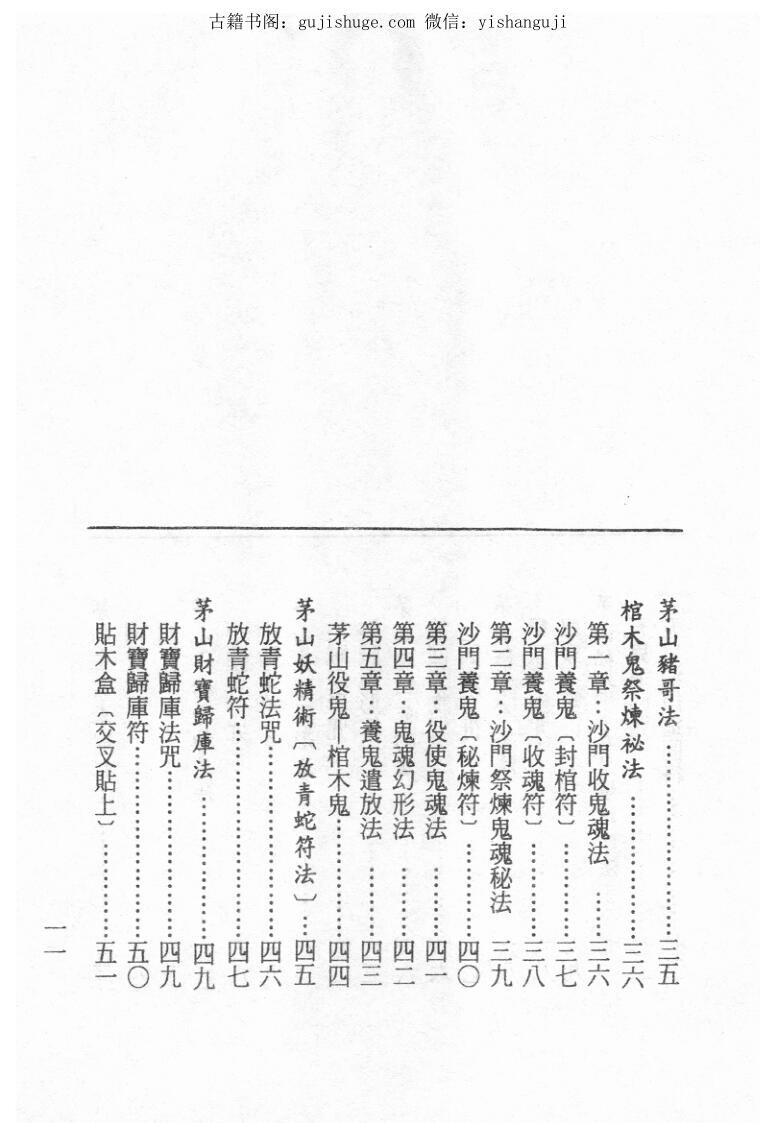 古籍书阁：gujishuge.com 微信：yishanguji
茅山豬哥法……………………三五
棺木鬼祭煉祕法………………三六
第一章：沙門收鬼魂法……三六
沙門養鬼〔封棺符〕…………三七
沙門養鬼〔收魂符〕…………三八
第二章：沙門祭煉鬼魂秘法 三九
沙門養鬼〔秘煉符〕…………四〇
第三章：役使鬼魂法………四一
第四章：鬼魂幻形法………四二
第五章：養鬼遣放法………四三
茅山役鬼—棺木鬼……………四四
茅山妖精術〔放青蛇符法〕…四五
放青蛇法咒……………………四六
放青蛇符………………………四七
茅山財寶歸庫法………………四九
財寶歸庫法咒…………………四九
財寶歸庫符……………………五〇
貼木盒〔交叉貼上〕…………五一
一一